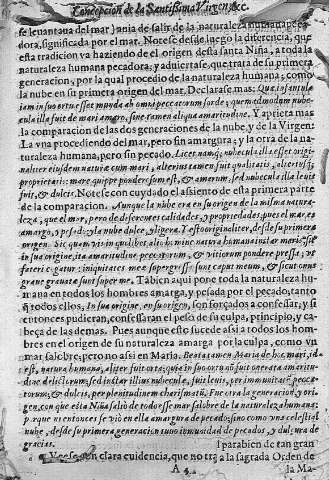 Concepcion de la Santissima Virgen, &c.
se leuantaua del mar) auia de salir de la naturaleza humana peca
dora, significada por el mar. Notese desde luego la diferencia, que
esta tradicion va haziendo de el origen desta santa Niña, a toda la
naturaleza humana pecadora; y aduiertase, que trata de su primera
generacion, por la qual procedio de la naturaleza humana; como
la nube en su primera origen del mar. Declarase mas: Quia insantula
iam in suo ortu esset munda ab omni peccatorum sorde; quemadmodum nube-
cula illa fuit de mari amaro, sine tamen aliqua amaritudine. Y aprieta mas
la comparacion de las dos generaciones de la nube, y de la Virgen:
La vna procediendo del mar, pero sin amargura; y la otra de la na-
turaleza humana, pero sin pecado. Licet namq; nubecula illa esset origi-
naliter eiusdem naturæ cum mari, aliter tamen fuit qualitatis, aliterq;
proprietatis: mare quippe ponderosum est, & amarum, sed nubecula illa leuis
fuit, & dulcis. Notese con cuydado el assiento de esta primera parte
de la comparacion. Aunque la nube era en su origen de la misma natura-
leza, que el mar, pero de diferentes calidades, y propriedades; pues el mar es
amargo, y pesado; y la nube dulce, y ligera. Y esso originaliter, desde su primera
origen. Sic quamvis in quolibet alio homine natura humana instar maris fuit
in sua origine, ita amaritudine peccatorum, & vitiorum pondere pressa, vt
fateri cogatur: iniquitates meæ supergressæ sunt caput meum, & sicut onus
graue grauatæ sunt super me. Tãbien aqui pone toda la naturaleza hu
mana en todos los hombres amarga, y pesada por el pecado; tanto
q̃ todos ellos, In sua origine, en su origen, son forçados a confessar, y si
entonces pudieran, confessaran el peso de su culpa, principio, y ca-
beça de las demas. Pues aunque esto sucede assi a todos los hom-
bres en el origen de su naturaleza amarga por la culpa, como vn
mar salobre; pero no assi en Maria. Beata tamen Maria de hoc mari, id
est, natura humana, aliter fuit orta; quia in suo ortu nõ fuit onerata amaritu-
dine delictorum; sed instar illius nubeculæ, fuit leuis, per immunitatẽ pecca-
torum; & dulcis, per plenitudinem charismatũ. Fue otra la generacion, y ori-
gen, con que esta Niña salio de todo esse mar salobre de la naturaleza humana;
porque ni entonces se viò en ella amargura de pecado; sino como vna celestial
nube, desde su primera generacion tuuo inmunidad de pecados, y dulçura de
gracias.
parabien de tan gran
en clara euidencia, que no trà a la sagrada Orden de
A 4 la Ma-